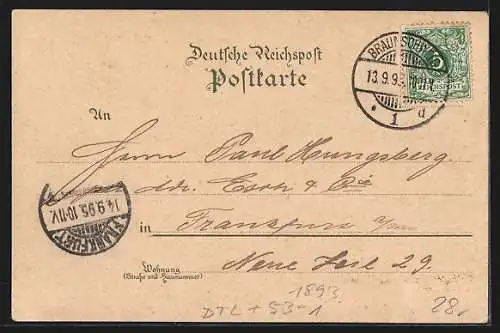 Deutsche Reichspost
Postkarte
BRAUNSCHW
13.9.95
1 d
5
REICHSPOST
An
Herrn Paul Hungsberg
adr. Esch & Cie
in Frankfurt a/m
Neue Zeil 29.
Wohnung
(Straße und Hausnummer)
FRANKFURT
14.9.95. 10-11V.
1893
DTL + 53-1
28.-